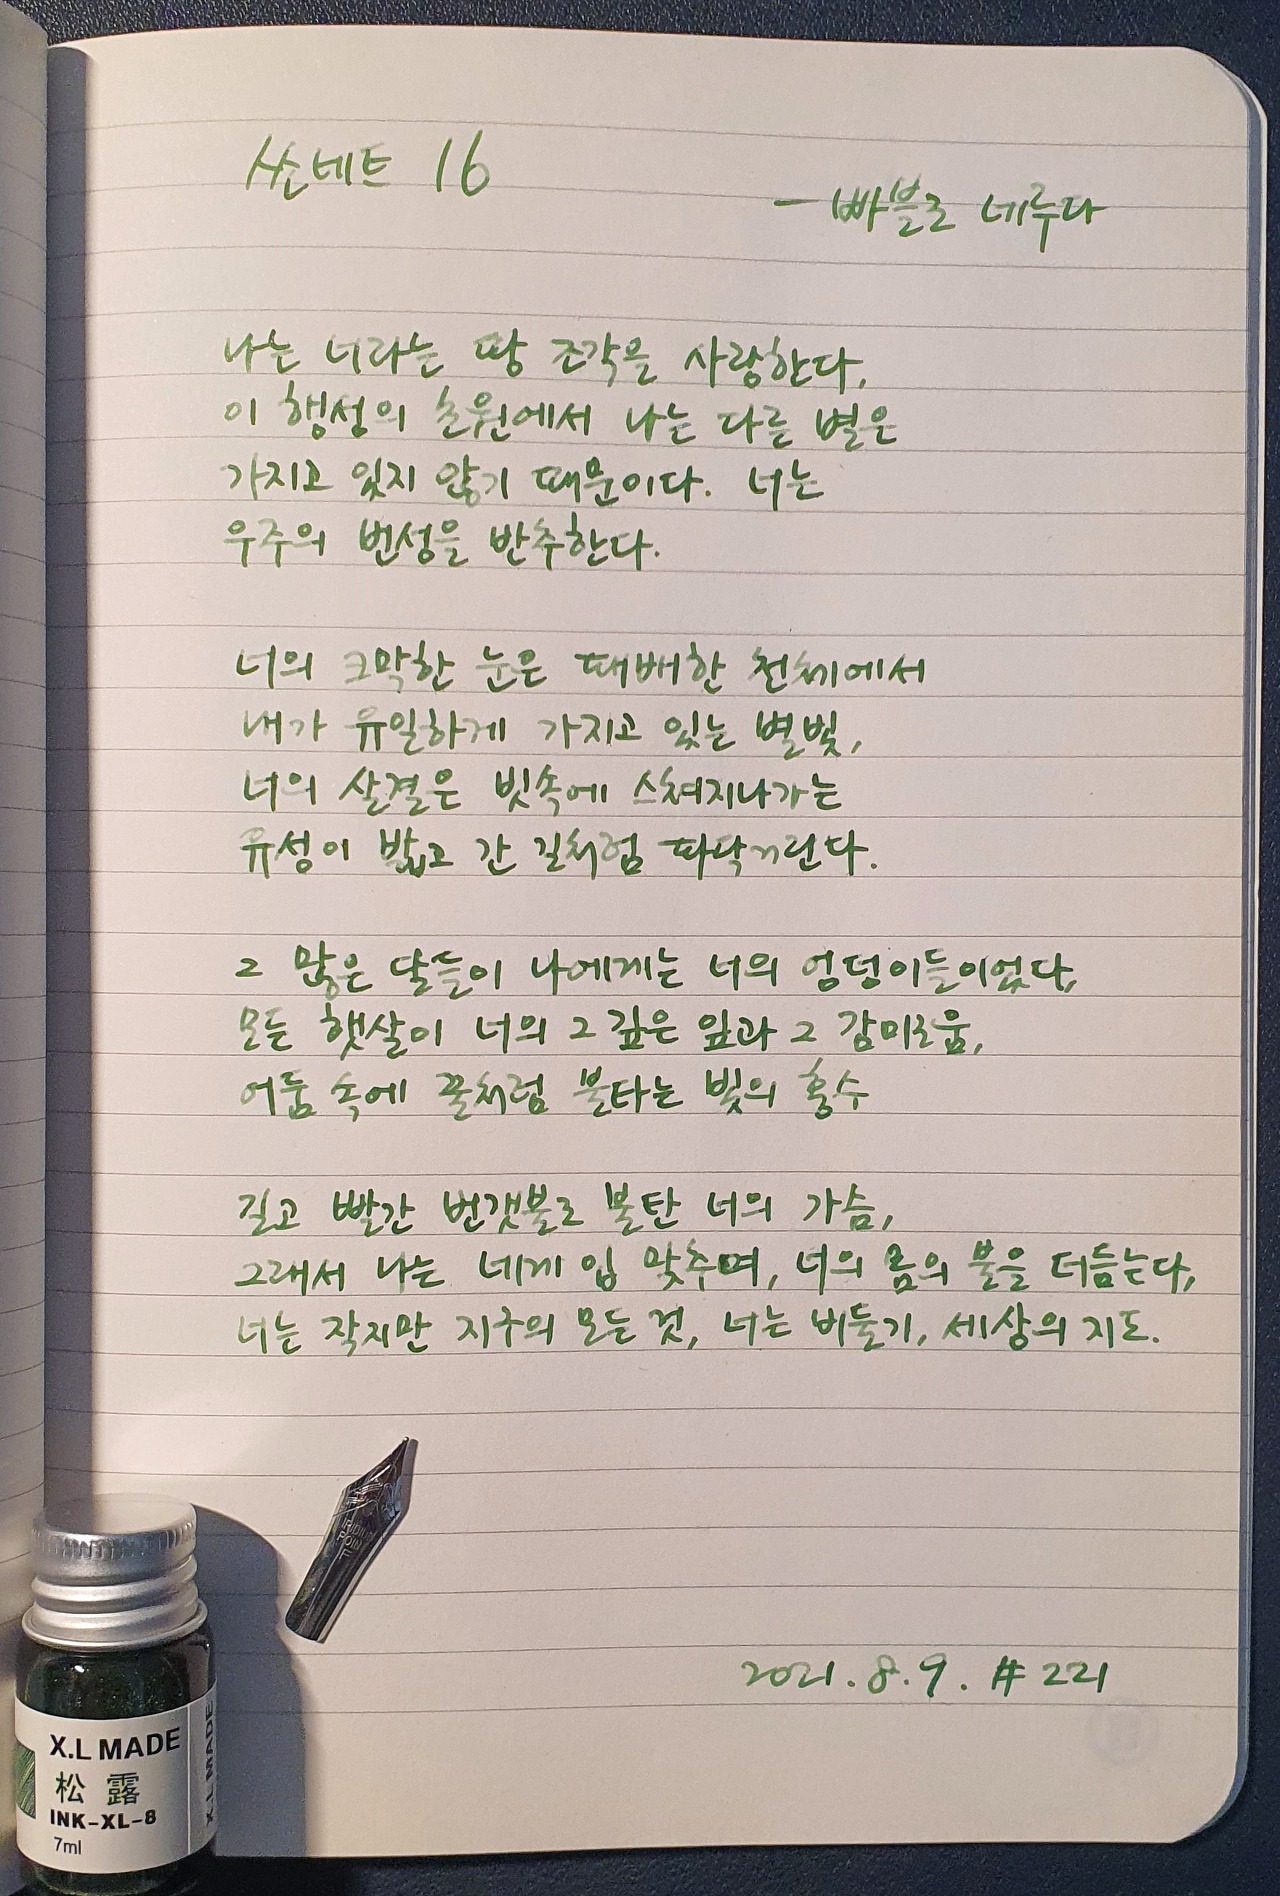 쏜네트 16
- 빠블로 네루다
나는 너라는 땅 조각을 사랑한다,
이 행성의 초원에서 나는 다른 별은
가지고 있지 않기 때문이다. 너는
우주의 번성을 반추한다.
너의 크막한 눈은 패배한 천체에서
내가 유일하게 가지고 있는 별빛,
너의 살결은 빗속에 스쳐지나가는
유성이 밟고 간 길처럼 파닥거린다.
그 많은 달들이 나에게는 너의 엉덩이들이었다,
모든 햇살이 너의 그 깊은 잎과 그 감미로움,
어둠 속에 꿀처럼 불타는 빛의 홍수
길고 빨간 번갯불로 불탄 너의 가슴,
그래서 나는 네게 입 맞추며, 너의 몸의 불을 더듬는다,
너는 작지만 지구의 모든 것, 너는 비둘기, 세상의 지도.
IRIDIUM
POINT
F
2021.8.9. # 221
X.L MADE
松露
INK-XL-8
7ml
X.L MADE